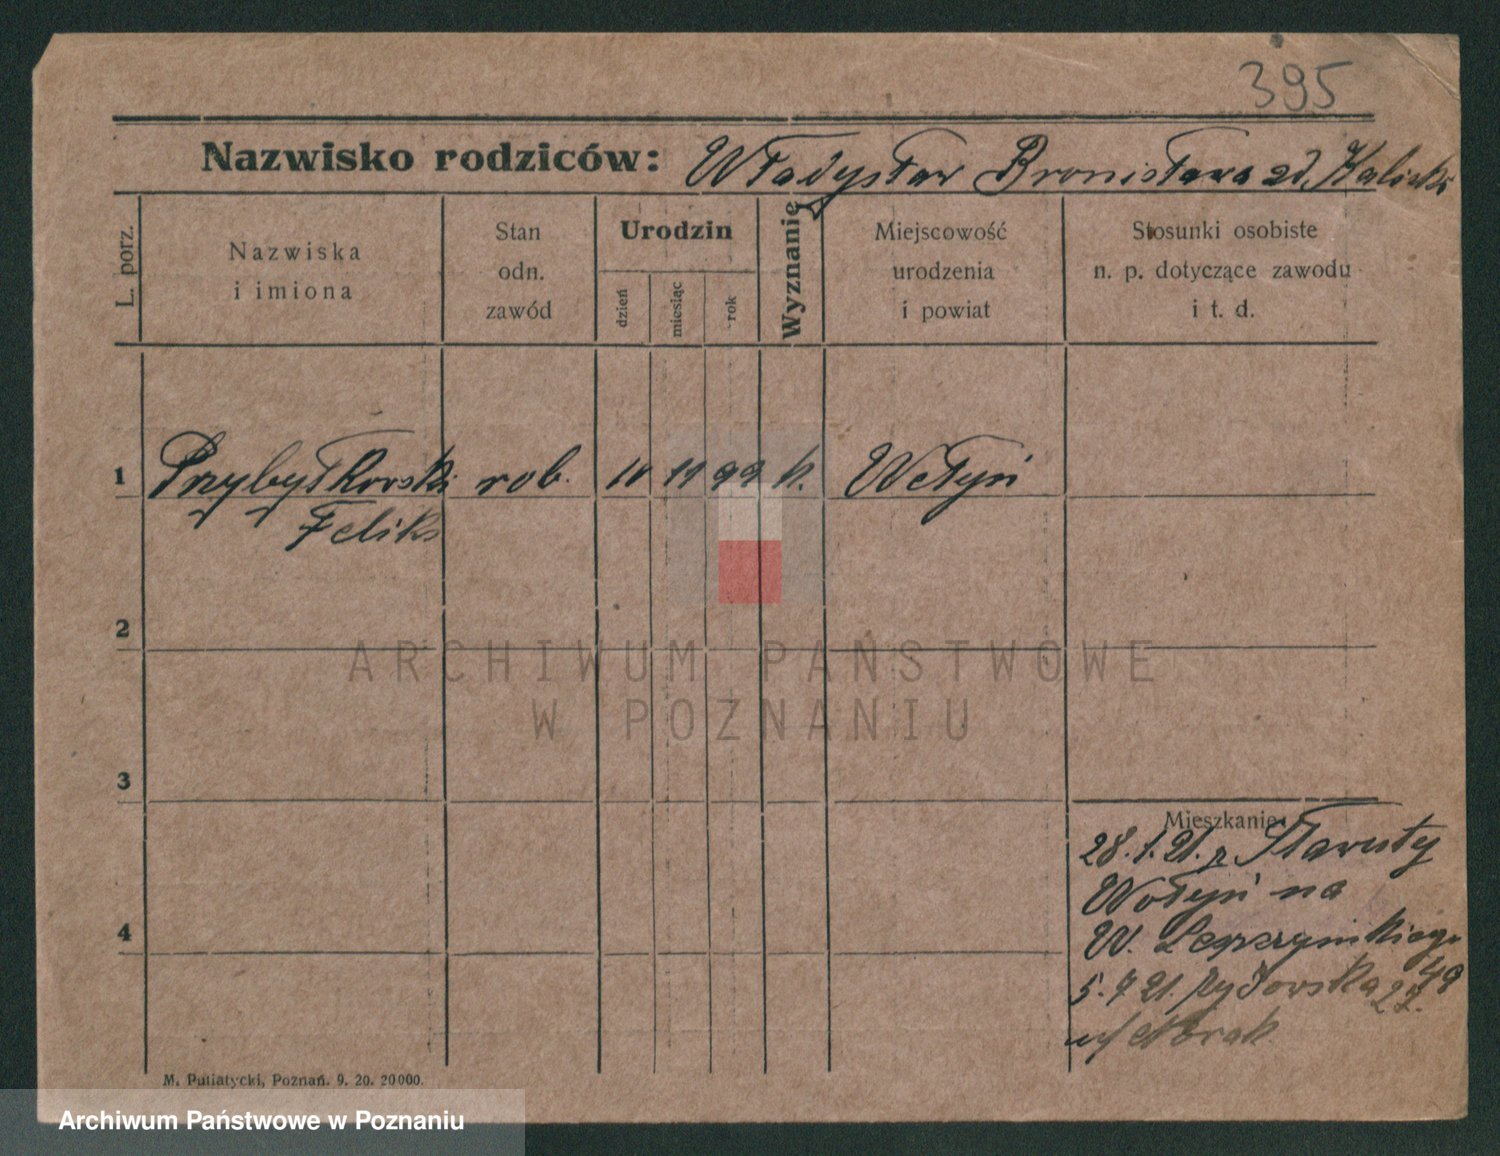 395
Nazwisko rodziców: Władysław Bronisława zd. Kaliski
L. porz.
Nazwiska i imiona
Stan odn. zawód
Urodzin
dzień
miesiąc
rok
Wyznanie
Miejscowość urodzenia i powiat
Stosunki osobiste n. p. dotyczące zawodu i t. d.
1 Przybyłkowski rob. 11 99 k. Wełyń
Feliks
2
3
4
Mieszkanie:
28.1.21. z Sławuty
Wołyń na
W.
49
5.7.21. Żydowska 27.
w/ Nowak
M. Putiatycki, Poznań. 9. 20. 20000.
ARCHIWUM PAŃSTWOWE
W POZNANIU
Archiwum Państwowe w Poznaniu